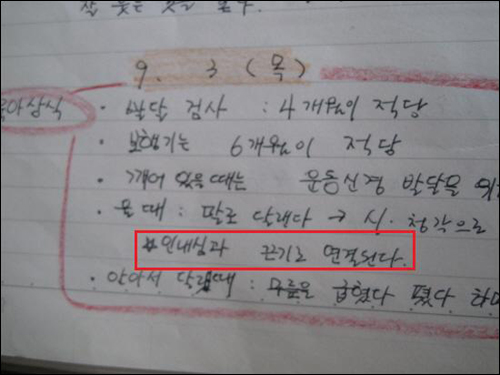 9. 3 (목)
육아상식
· 발달 검사 : 4개월이 적당
· 보행기는 6개월이 적당
· 깨어 있을 때는 운동신경 발달을
· 울 때 : 말로 달래다 → 시·청각으로
☆인내심과 끈기로 연결된다.
· 안아서 달랠때 : 무릎을 굽혔다 폈다 하며